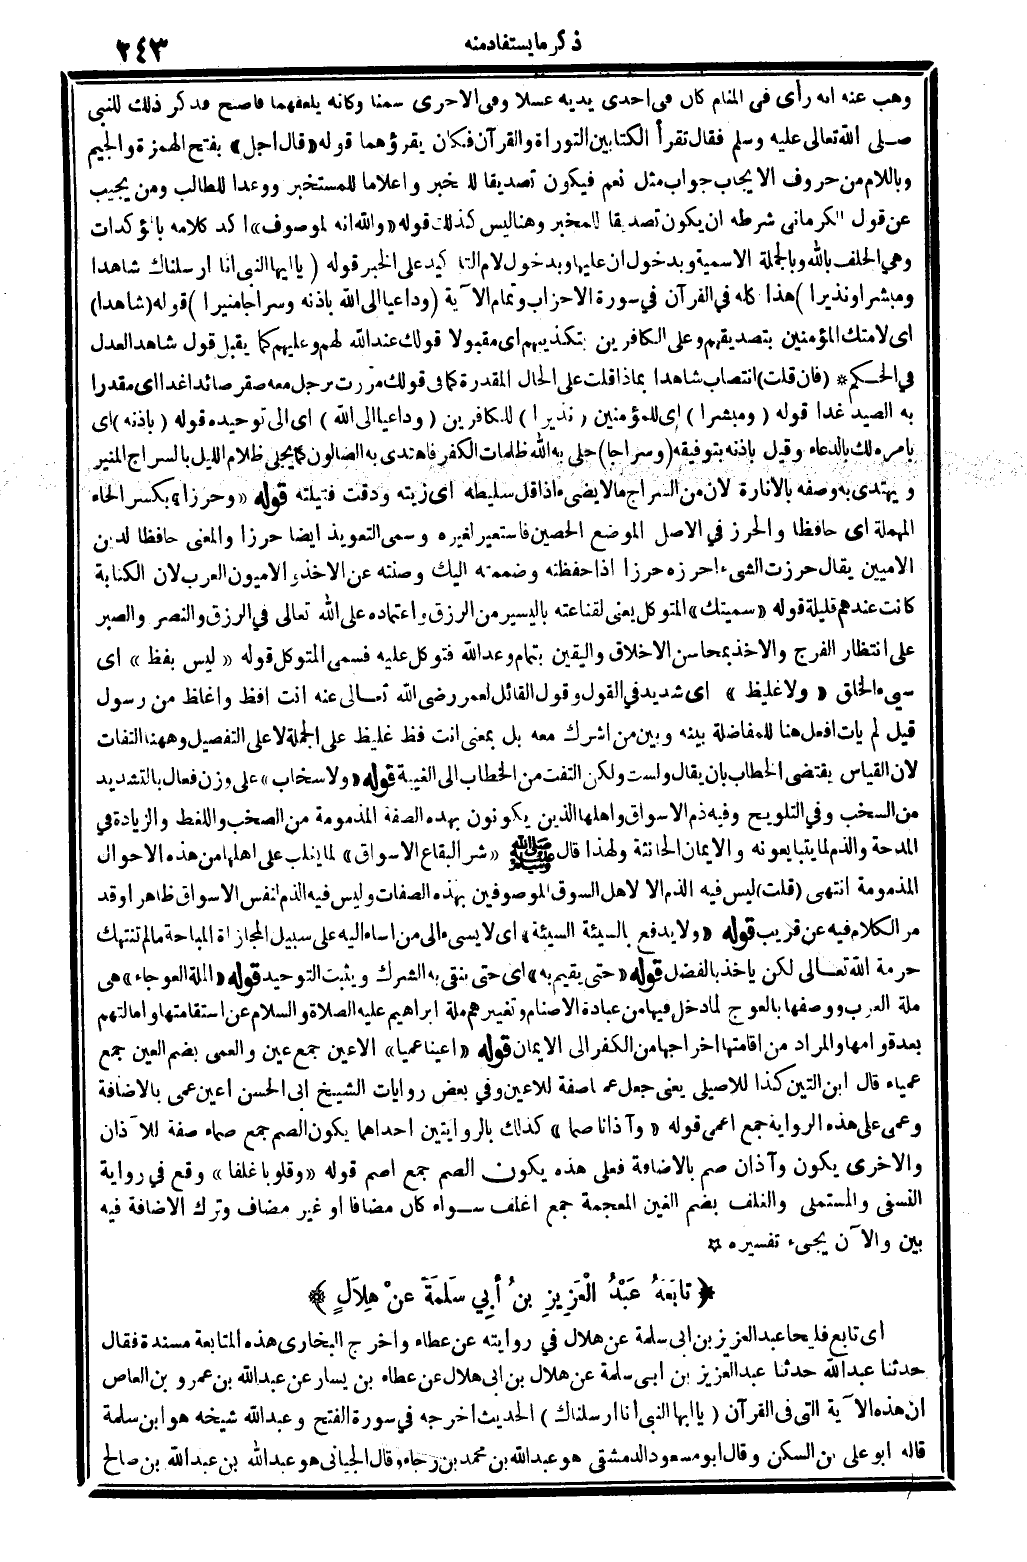 ذكر ما يستفاد منه
٢٤٣
وهب عنه انه رأى فى المنام كان فى احدى يديه عسلا وفى الاخرى سمنا وكانه يلعقهما فاصبح فذكر ذلك للنبى
صلى الله تعالى عليه وسلم فقال تقرأ الكتابين التوراة والقرآن فكان يقرؤهما قوله «قال اجل» بفتح الهمزة والجيم
وباللام من حروف الايجاب جواب مثل نعم فيكون تصديقا للخبر واعلاما للمستخبر ووعدا للطالب ومن يجيب
عن قول الكرمانى شرطه ان يكون تصديقا للمخبر وهنا ليس كذلك قوله «والله انه لموصوف» اكد كلامه بالمؤكدات
وهي الحلف بالله وبالجملة الاسمية وبدخول ان عليها وبدخول لام التاكيد على الخبر قوله (يا ايها النبى انا ارسلناك شاهدا
ومبشرا ونذيرا) هذا كله في القرآن في سورة الاحزاب وتمام الآية (وداعيا الى الله باذنه وسراجا منيرا) قوله (شاهدا)
اى لامتك المؤمنين بتصديقهم وعلى الكافرين بتكذيبهم اى مقبولا قولك عند الله لهم وعليهم كما يقبل قول شاهد العدل
في الحكم * (فان قلت) انتصاب شاهدا بماذا قلت على الحال المقدرة كما فى قولك مررت برجل معه صقر صائد اغدا اى مقدرا
به الصيد غدا قوله (ومبشرا) اى للمؤمنين (نذيرا) للكافرين (وداعيا الى الله) اى الى توحيده قوله (باذنه) اى
بامره لك بالدعاء وقيل باذنه بتوفيقه (وسراجا) جلى به الله ظلمات الكفر فاهتدى به الضالون كما يجلى ظلام الليل بالسراج المنير
ويهتدى به وصفه بالانارة لان من السراج ما لا يضىء اذا قل سليطه اى زيته ودقت فتيلته قوله «وحرزا» بكسر الحاء
المهملة اى حافظا والحرز في الاصل الموضع الحصين فاستعير لغيره وسمى التعويذ ايضا حرزا والمعنى حافظا لدين
الاميين يقال حرزت الشىء احرزه حرزا اذا حفظته وضممته اليك وصنته عن الاخذ والاميون العرب لان الكتابة
كانت عندهم قليلة قوله «سميتك» المتوكل يعنى لقناعته باليسير من الرزق واعتماده على الله تعالى في الرزق والنصر والصبر
على انتظار الفرج والاخذ بمحاسن الاخلاق واليقين بتمام وعد الله فتوكل عليه فسمى المتوكل قوله «ليس بفظ» اى
سيىء الخلق «ولا غليظ» اى شديد فى القول وقول القائل لعمر رضى الله تعالى عنه انت افظ واغلظ من رسول
قيل لم يات افعل هنا للمفاضلة بينه وبين من اشرك معه بل بمعنى انت فظ غليظ على الجملة لا على التفصيل وههنا التفات
لان القياس يقتضى الخطاب بان يقال ولست ولكن التفت من الخطاب الى الغيبة قوله «ولا سخاب» على وزن فعال بالتشديد
من السخب وفي التلويح وفيه ذم الاسواق واهلها الذين يكونون بهذه الصفة المذمومة من الصخب واللغط والزيادة في
المدحة والذم لما يتبايعونه والايمان الحانثة ولهذا قال ﷺ «شر البقاع الاسواق» لما يغلب على اهلها من هذه الاحوال
المذمومة انتهى (قلت) ليس فيه الذم الا لاهل السوق الموصوفين بهذه الصفات وليس فيه الذم لنفس الاسواق ظاهرا وقد
مر الكلام فيه عن قريب قوله «ولا يدفع بالسيئة السيئة» اى لا يسىء الى من اساء اليه على سبيل المجازاة المباحة ما لم تنتهك
حرمة الله تعالى لكن ياخذ بالفضل قوله «حتى يقيم به» اى حتى ينفى به الشرك ويثبت التوحيد قوله «الملة العوجاء» هى
ملة العرب ووصفها بالعوج لما دخل فيها من عبادة الاصنام وتغييرهم ملة ابراهيم عليه الصلاة والسلام عن استقامتها وامالتهم
بعد قوامها والمراد من اقامتها اخراجها من الكفر الى الايمان قوله «اعينا عميا» الاعين جمع عين والعمى بضم العين جمع
عمياء قال ابن التين كذا للاصيلى يعنى جعل عميا صفة للاعين وفي بعض روايات الشيخ ابى الحسن اعين عمى بالاضافة
وعمى على هذه الرواية جمع اعمى قوله «وآذانا صما» كذلك بالروايتين احداهما يكون الصم جمع صماء صفة للآذان
والاخرى يكون وآذان صم بالاضافة فعلى هذه يكون الصم جمع اصم قوله «وقلوبا غلفا» وقع في رواية
النسفى والمستملى والغلف بضم الغين المعجمة جمع اغلف سواء كان مضافا او غير مضاف وترك الاضافة فيه
بين والآن يجىء تفسيره *
﴿ تابَعَهُ عَبْدُ الْعَزِيزِ بنُ أبِي سَلَمَةَ عنْ هِلاَلٍ ﴾
اى تابع فليحا عبد العزيز بن ابى سلمة عن هلال في روايته عن عطاء واخرج البخارى هذه المتابعة مسندة فقال
حدثنا عبد الله حدثنا عبد العزيز بن ابى سلمة عن هلال بن ابى هلال عن عطاء بن يسار عن عبد الله بن عمرو بن العاص
ان هذه الآية التى فى القرآن (يا ايها النبى انا ارسلناك) الحديث اخرجه في سورة الفتح وعبد الله شيخه هو ابن سلمة
قاله ابو على بن السكن وقال ابو مسعود الدمشقى هو عبد الله بن محمد بن رجاء وقال الجيانى هو عبد الله بن عبد الله بن صالح